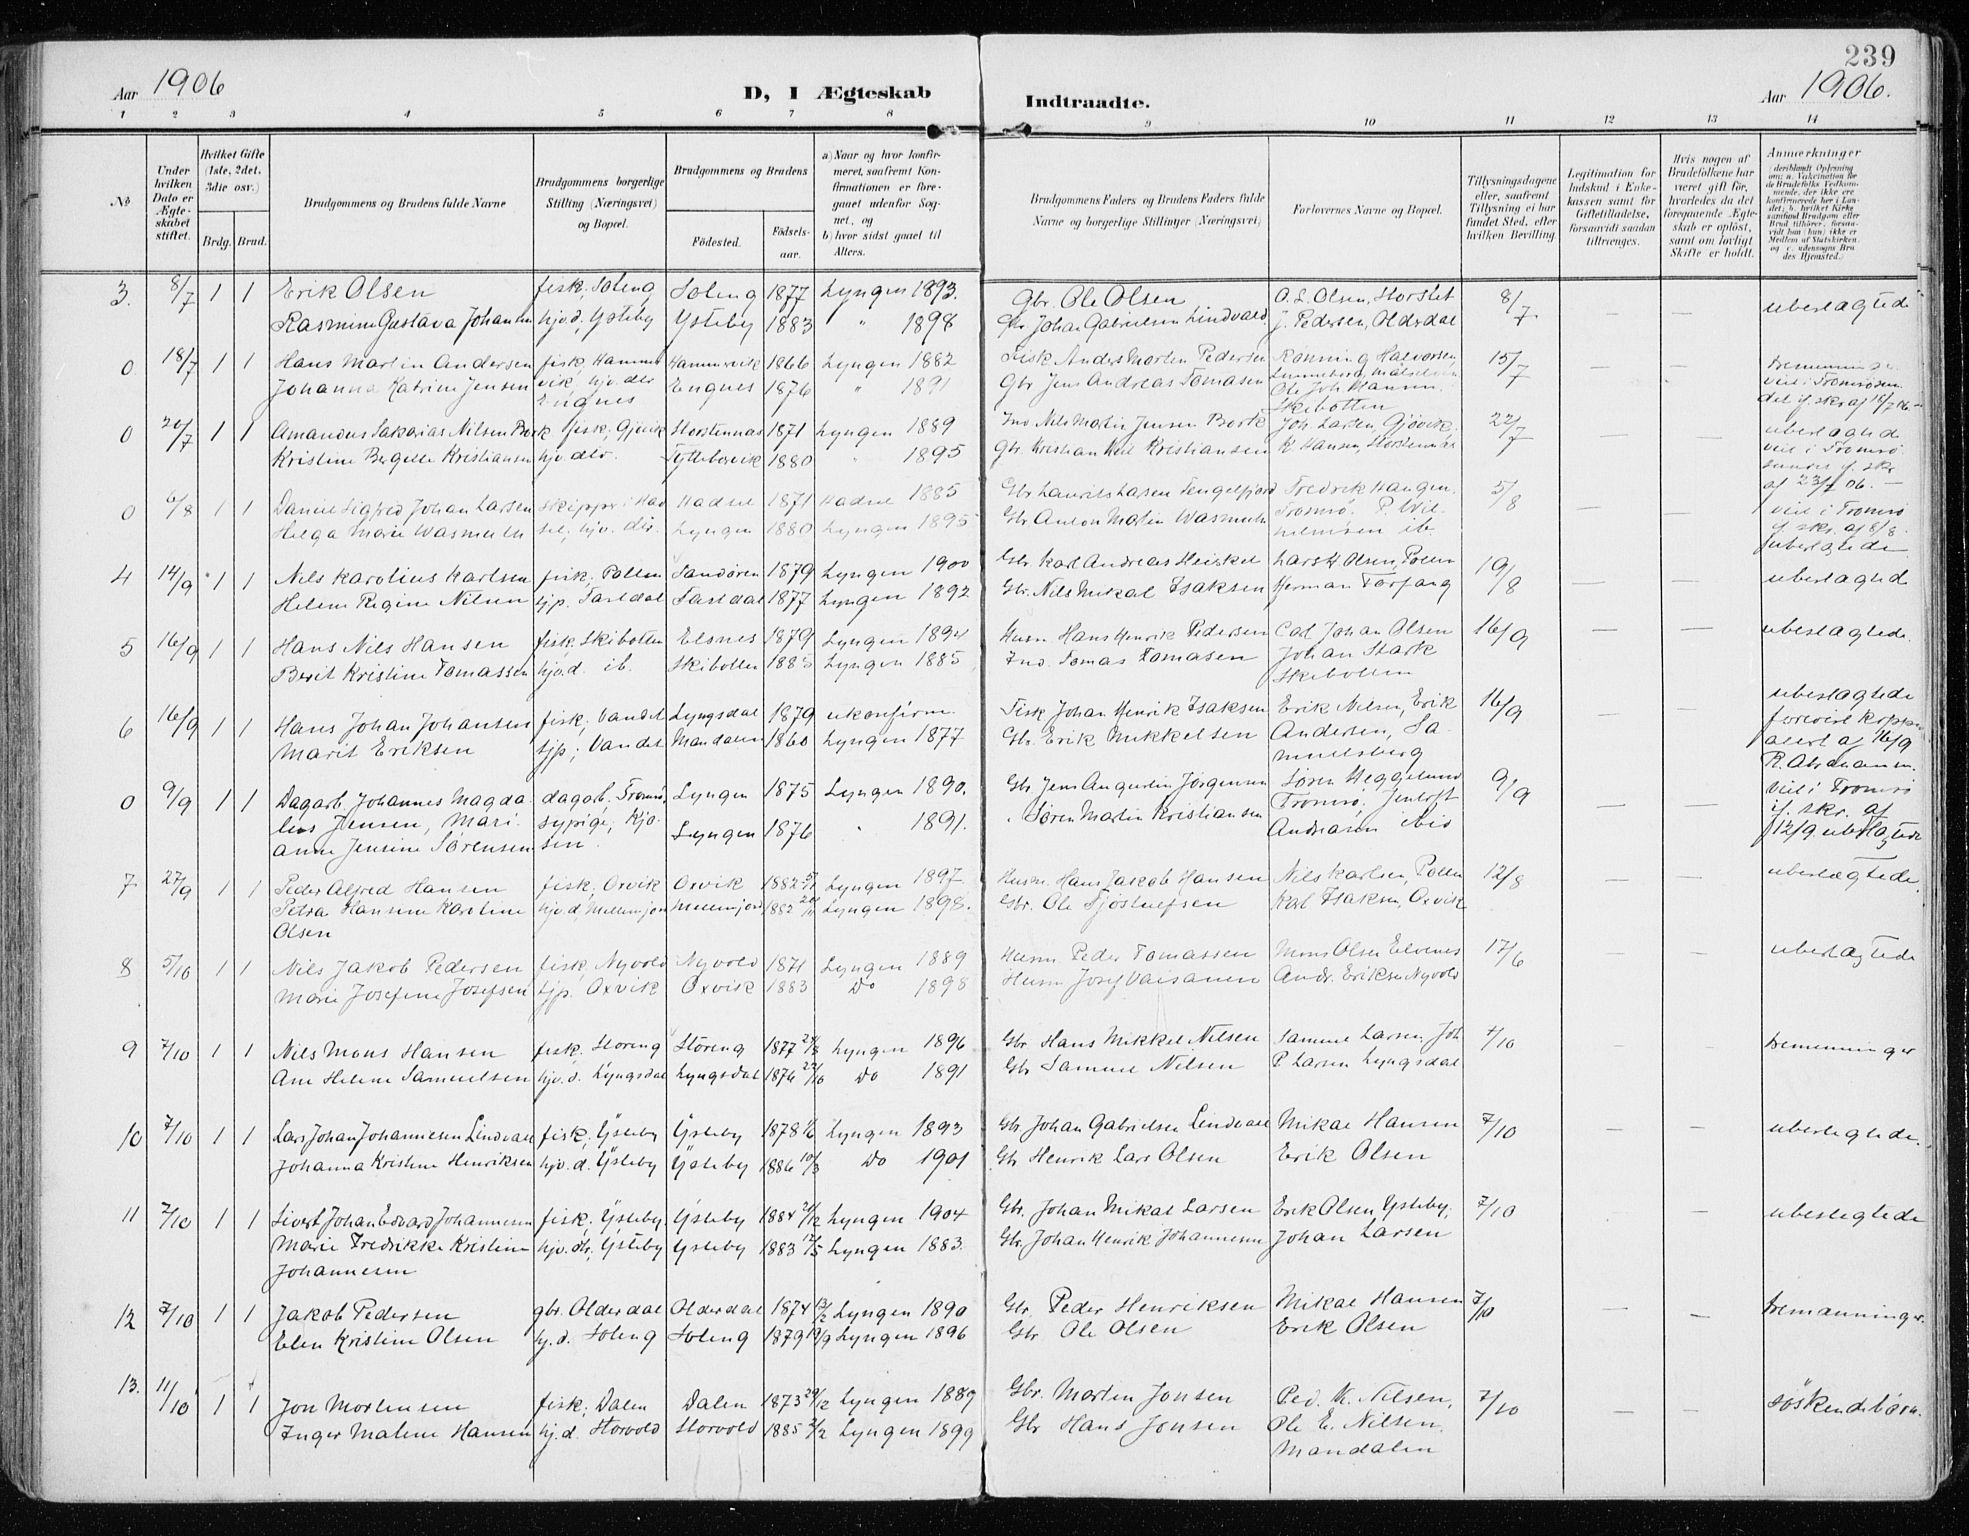 239
Aar 1906
D, I Ægteskab Indtraadte.
Aar 1906.
1 2 3 4 5 6 7 8 9 10 11 12 13 14
No
Under hvilken Dato er Ægteskabet stiftet.
Hvilket Gifte (1ste, 2det, 3die osv.)
Brdg. Brud.
Brudgommens og Brudens fulde Navne
Brudgommens borgerlige Stilling (Næringsvei) og Bopæl.
Brudgommens og Brudens
Fødested. Fødselsaar.
a) Naar og hvor konfirmeret, saafremt Konfirmationen er foregaaet udenfor Sognet, og
b) hvor sidst gaaet til Alters.
Brudgommens Faders og Brudens Faders fulde Navne og borgerlige Stillinger (Næringsvei)
Forlovernes Navne og Bopæl.
Tillysningsdagene eller, saafremt Tillysning ei har fundet Sted, efter hvilken Bevilling.
Legitimation for Indskud i Enkekassen samt for Giftetilladelse, forsaavidt saadan tiltrænges.
Hvis nogen af Brudefolkene har været gift før, hvorledes da det foregaaende Ægteskab er opløst, samt om lovligt Skifte er holdt.
Anmerkninger
3. 8/7 1 1 Erik Olsen fisk; Soleng Soleng 1877 Lyngen 1893. Gbr. Ole Olsen O. L. Olsen, Storslet 8/7 — — ubeslagtede
Rasmine Gustava Johansen hjv.d. Ysteby Ysteby 1883 " 1898 Gbr Johan Gabrielsen Lindvald J. Pedersen, Olderdal
0 18/7 1 1 Hans Martin Andersen fisk, Hamner Hamnervik 1866 Lyngen 1882 Fisk Anders Morten Pedersen Rønning Halvorsen 15/7 — —
Johanna Katrine Jensen vik, hjv. dtr Engnes 1876 " 1891 Gbr Jens Andreas Tomasen Ole Joh Hansen
Engnes Skibotten viet i Tromsøsundet if. skr af 18/7 06 —
0 20/7 1 1 Amandus Sakarias Nilsen Bork fisk; Gjøvik Storstennes 1871 Lyngen 1889 Ind Nils Martin Jensen Bork Joh Larsen, Gjøvik. 22/7 — — ubeslagted
Kristine Bergette Kristiansen hjv.dtr. Tyttebærvik 1880 " 1895 Gbr. Kristian Karl Kristiansen K Hansen, Storstennes viet i Tromsø
sundet if. skr
af 23/7 06. —
0 6/8 1 1 Daniel Sigfred Johan Larsen skipper; Had Hadsel 1871 Hadsel 1885 Gbr Laurits Larsen Tengelfjord Fredrik Hangen, 5/8 — — viet i Tromsø
Helga Marie Wasmuth sel; hjv. dtr. Lyngen 1880 Lyngen 1895 Gbr Anton Martin Wasmuth Tromsø. P. Wil- if. skr. af 8/8.
helmsen ib. ubeslagtede
4 14/9 1 1 Nils Karolius Karlsen fisk; Pollen Sandøren 1879 Lyngen 1900 Gbr Karl Andreas Heiskel Lars H Olsen, Pollen 19/8 — — ubeslagted
Helene Regine Nilsen tjp. Sartdal Sartdal 1877 Lyngen 1892 Gbr. Nils Mikal Isaksen Herman Torfang
5 16/9 1 1 Hans Nils Hansen fisk, Skibotten Elsnes 1879 Lyngen 1894 Husm Hans Henrik Pedersen Carl Johan Olsen 16/9 — — ubeslagtede.
Berit Kristine Tomassen hjv.d. ib. Skibotten 1885 Lyngen 1885 Ind. Tomas Tomasen Johan Stark
Skibotten
6 16/9 1 1 Hans Johan Johansen fisk; Vandet Lyngsdal 1879 ukonfirm. Fisk Johan Henrik Isaksen Erik Nilsen, Erik 16/9 — — ubeslagtede
Marit Eriksen tjp; Vandet Mandalen 1860 Lyngen 1877 Gbr. Erik Mikkelsen Andersen, Sa-
muelsberg
0 9/9 1 1 Dagarb. Johannes Magda- dagarb, Tromsø, Lyngen 1875 Lyngen 1890. Gbr Jens Augustin Jørgensen Søren Heggelund 9/9 — — viet i Tromsø
lius Jensen, Mari- sypige, Kjo- Lyngen 1876 " 1891. " Søren Martin Kristiansen Tromsø; Jentoft if. skr. af
anne Jensine Sørensen sen. Andreasen ibid 12/9 ubeslagtede
7 27/9 1 1 Peder Alfred Hansen fisk; Oxvik Oxvik 1882 Lyngen 1897 Husm. Hans Jakob Hansen Nils Karlsen, Pollen 12/8 — — ubeslægtede.
Petra Hansine Karoline hjv.d. Mellemjord Mellemjord 1882 Lyngen 1898. Gbr. Ole Sjøstuefsen Karl Isaksen, Oxvik
Olsen
8 5/10 1 1 Nils Jakob Pedersen fisk, Nyvold Nyvold 1871 Lyngen 1889 Husm Peder Tomassen Mons Olsen Elvenes 17/6 — — ubeslægtede
Marie Josefine Josefsen tjp. Oxvik Oxvik 1883 Do 1898 Husm Josef Vaisanen Andr. Eriksen Nyvold
9 7/10 1 1 Nils Mons Hansen fisk. Storeng Storeng 1877 Lyngen 1896 Gbr Hans Mikkel Nilsen Samuel Larsen, Joh 7/10 — — tremenninger
Ane Helene Samuelsen hjv.d. Lyngsdal Lyngsdal 1876 Do 1891 Gbr Samuel Nilsen P Larsen Lyngsdal
10 7/10 1 1 Lars Johan Johannesen Lindvall fisk; Ysteby Ysteby 1878 Lyngen 1893 Gbr Johan Gabrielsen Lindvall Mikal Hansen 7/10 — — ubeslegtede.
Johanna Kristine Henriksen hjv.d. Ysteby Ysteby 1886 10/3 Do 1901 Gbr Henrik Lars Olsen Erik Olsen
11 7/10 1 1 Sivert Johan Edvard Johannesen fisk; Ysteby Ysteby 1884 21/12 Lyngen 1904 Gbr. Johan Mikal Larsen Erik Olsen Ysteby, 7/10 — — ubeslegtede
Marie Fredrikke Kristine hjv.dtr, Ysteby Ysteby 1883 12/5 Lyngen 1883. Gbr. Johan Henrik Johannesen Johan Larsen
Johannesen
12 7/10 1 1 Jakob Pedersen gbr. Olderdal Olderdal 1874 13/2 Lyngen 1890 Gbr. Peder Henriksen Mikal Hansen 7/10 — — tremanninger
Elen Kristine Olsen hj.d. Soleng Soleng 1879 19/9 Lyngen 1896 Gbr Ole Olsen Erik Olsen
13. 11/10 1 1 Jon Mortensen fisk; Dalen Dalen 1873 29/12 Lyngen 1889 Gbr. Martin Jonsen Ped. K. Nilsen, 7/10 — — søskendebørn.
Inger Malene Hansen hj.d. Storvold Storvold 1885 2/2 Lyngen 1899 Gbr Hans Jonsen Ole E. Nilsen,
Mandalen